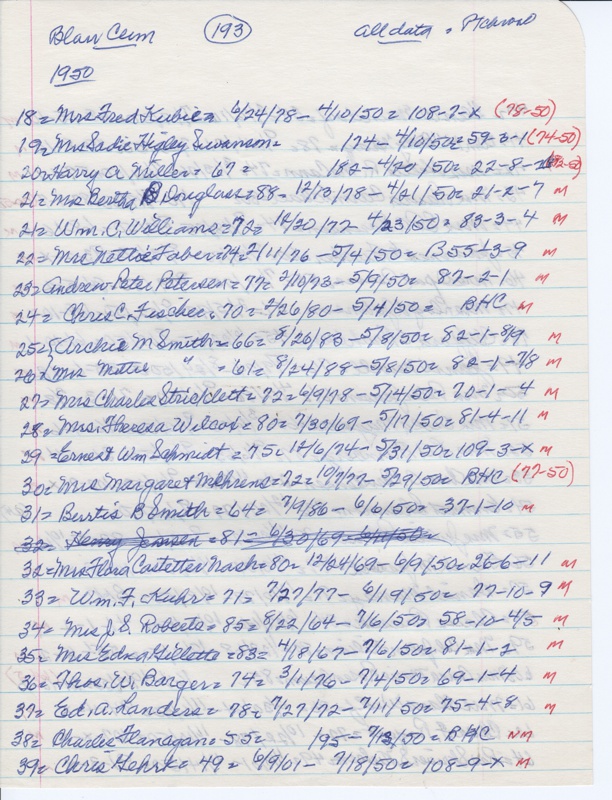 Blair Cem 193 all data =
1950
18 = Mrs Fred Kubie = 6/24/78 - 4/10/50 = 108-7-X (78-50)
19 = Mrs Sadie Higley Swanson = 174 - 4/10/50 = 59-3-1 (74-50)
20 = Harry A Miller = 67 = 182 - 4/20/50 = 22-8-
21 = Mrs Bertha B Douglass = 88 = 12/13/78 - 4/21/50 = 21-2-7 M
21 = Wm. C. Williams = 72 = 12/30/77 - 4/23/50 = 83-3-4 M
22 = Mrs Nettie Faber = 74 = 2/11/76 - 5/4/50 = B55-3-9 M
23 = Andrew Peter Petersen = 77 = 2/10/73 - 5/9/50 = 87-2-1 M
24 = Chris C. Fischer = 70 = 2/26/80 - 5/4/50 = BHC M
25 = { Archie M Smith = 66 = 8/26/83 - 5/8/50 = 82-1-8/9 M
26 = { Mrs Nettie " = 61 = 8/24/88 - 5/8/50 = 82-1-7/8 M
27 = Mrs Charles Stricklett = 72 = 6/9/78 - 5/14/50 = 70-1-4 M
28 = Mrs. Theresa Wilcox = 80 = 7/30/69 - 5/17/50 = 81-4-11 M
29 = Ernest Wm Schmidt = 75 = 12/6/74 - 5/31/50 = 109-3-X M
30 = Mrs Margaret Mehrens = 72 = 10/7/77 - 5/29/50 = BHC (77-50)
31 = Burtis B Smith = 64 = 7/9/86 - 6/6/50 = 37-1-10 M
32 = Henry Jensen = 81 = 6/30/69 = 6/11/50 =
32 = Mrs Flora Castetter Nash = 80 = 12/24/69 - 6/9/50 = 26-6-11 M
33 = Wm. F. Kuhr = 71 = 7/27/77 - 6/19/50 = 77-10-9 M
34 = Mrs J. S. Roberts = 85 = 8/22/64 - 7/6/50 = 58-10-4/5 M
35 = Mrs Edna Gillette = 83 = 4/18/67 - 7/6/50 = 81-1-2 M
36 = Thos. W. Barger = 74 = 3/1/76 - 7/4/50 = 69-1-4 M
37 = Ed. A. Landers = 78 = 7/27/72 - 7/11/50 = 75-4-8 M
38 = Charlie Flanagan = 55 = 195 - 7/13/50 = BHC NM
39 = Chris Gehrk = 49 = 6/9/01 - 7/18/50 = 108-9-X M